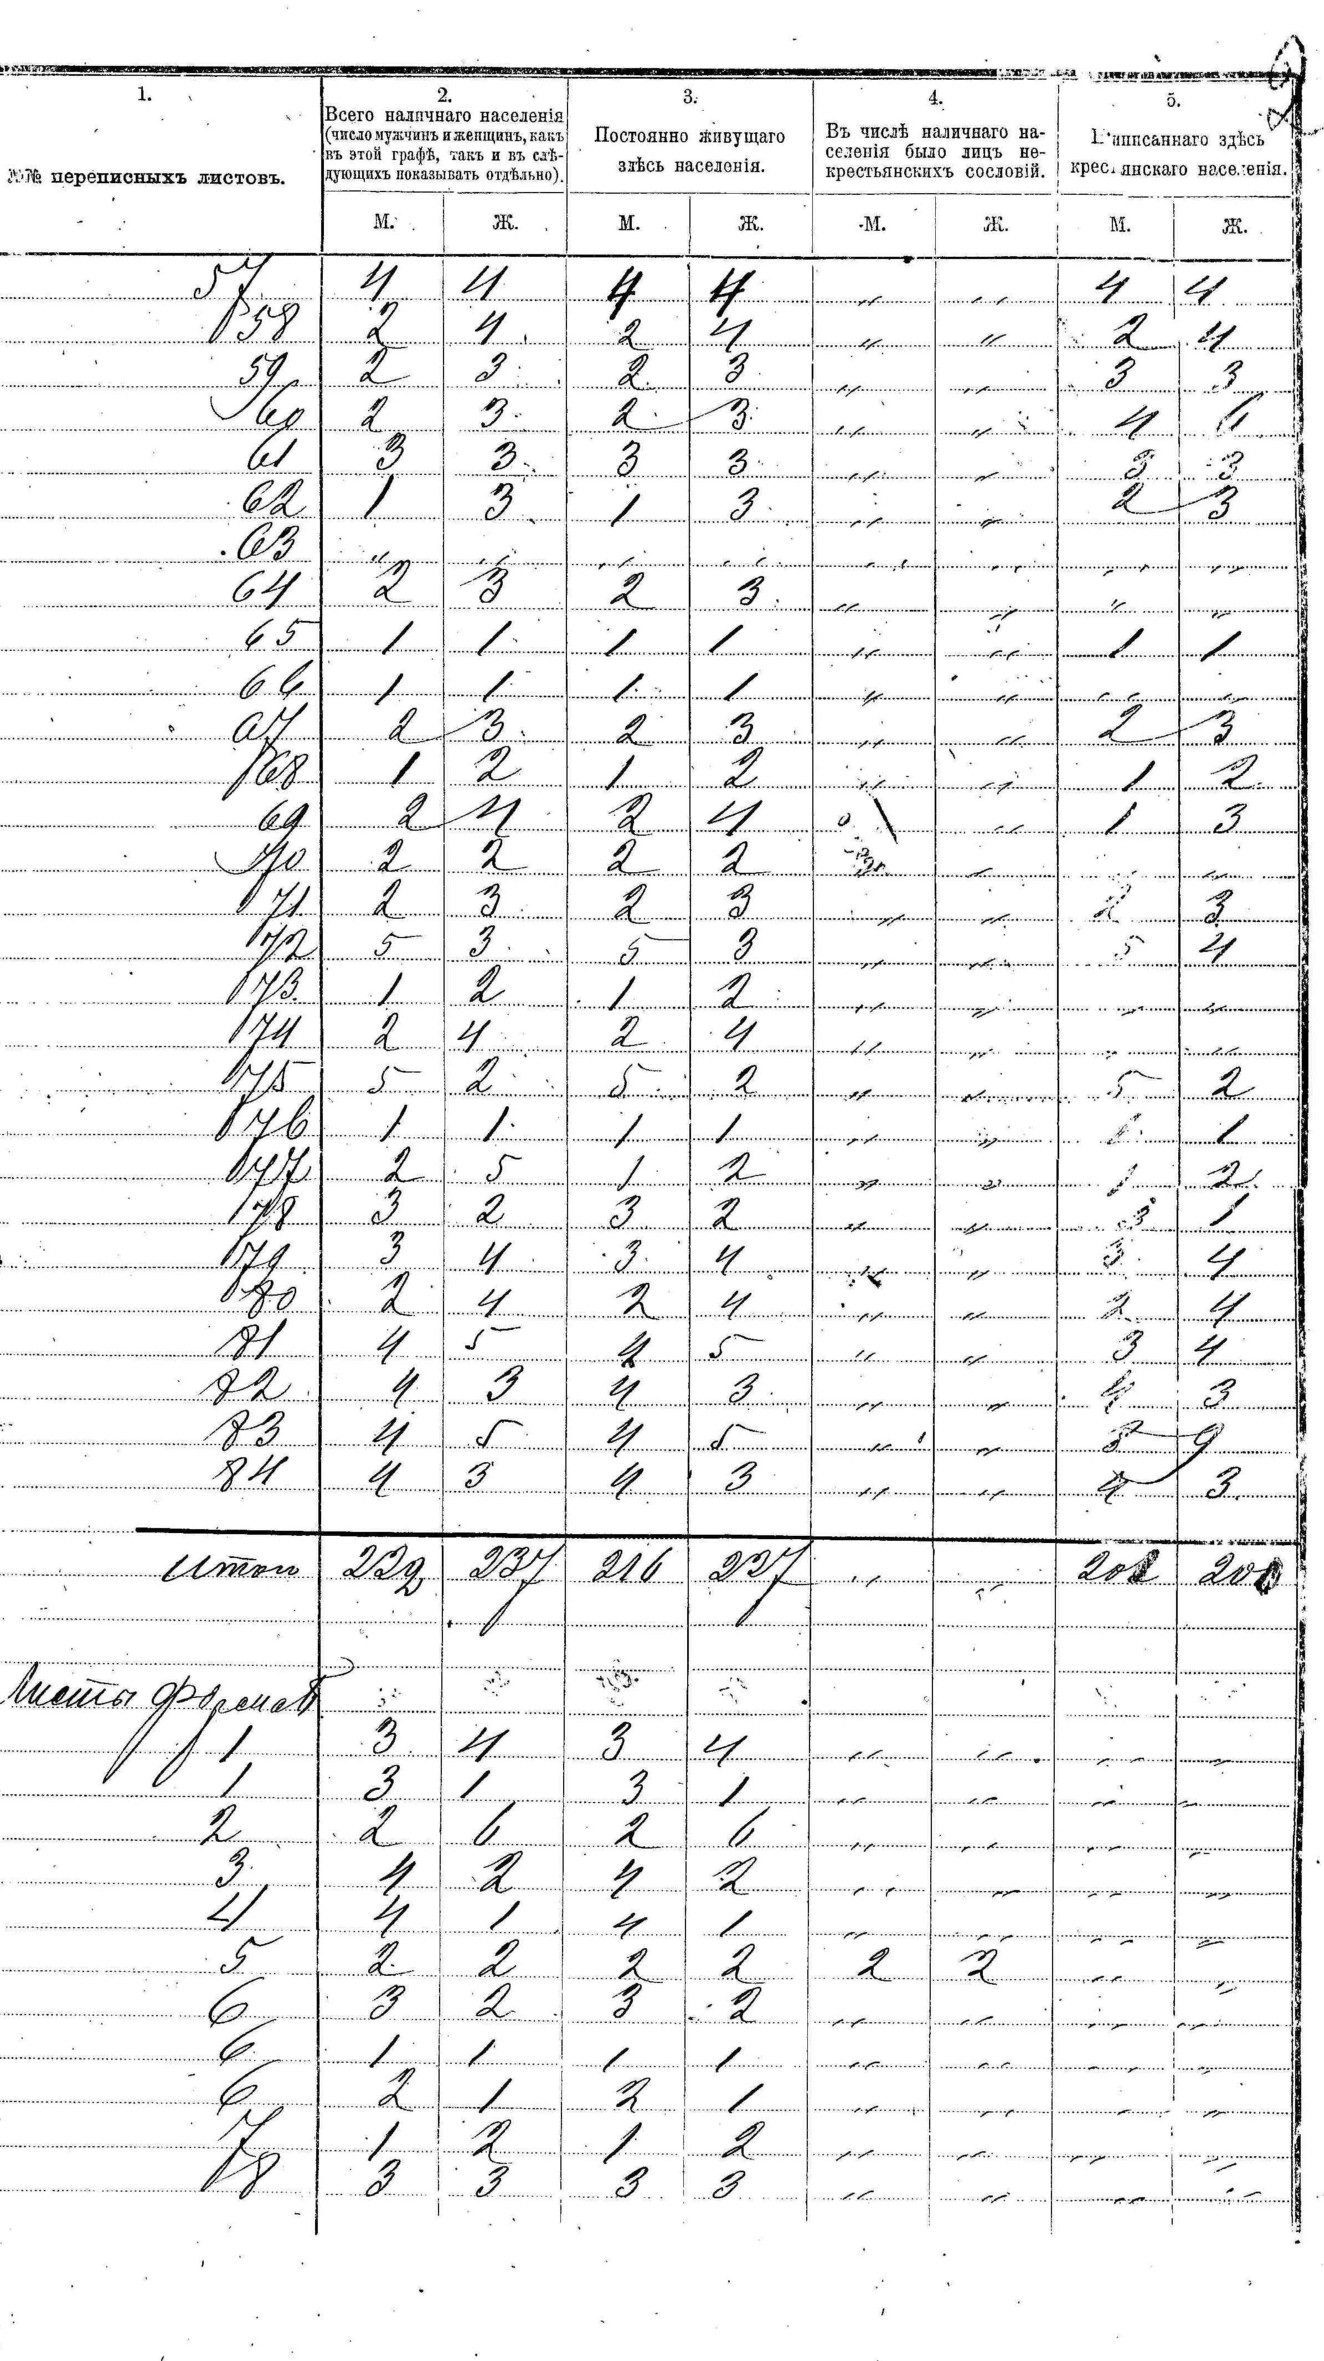 1. 2. 3. 4. 5.
№№ переписныхъ листовъ.
Всего наличнаго населенія
(число мужчинъ и женщинъ, какъ
въ этой графѣ, такъ и въ слѣ-
дующихъ показывать отдѣльно).
Постоянно живущаго
здѣсь населенія.
Въ числѣ наличнаго на-
селенія было лицъ не-
крестьянскихъ сословій.
Приписаннаго здѣсь
крестьянскаго населенія.
М. Ж. М. Ж. М. Ж. М. Ж.
57 4 4 4 4 " " 4 4
58 2 4 2 4 " " 2 4
59 2 3 2 3 " " 3 3
60 2 3 2 3 " " 4 6
61 3 3 3 3 " " 3 3
62 1 3 1 3 " " 2 3
63 " " " " " " " "
64 2 3 2 3 " " " "
65 1 1 1 1 " " 1 1
66 1 1 1 1 " " " "
67 2 3 2 3 " " 2 3
68 1 2 1 2 " " 1 2
69 2 4 2 4 " 1 3
70 2 2 2 2 " " "
71 2 3 2 3 " " 2 3
72 5 3 5 3 " " 5 4
73 1 2 1 2 " " " "
74 2 4 2 4 " " " "
75 5 2 5 2 " " 5 2
76 1 1 1 1 " " 1 1
77 2 5 1 2 " " 1 2
78 3 2 3 2 " " 3 1
79 3 4 3 4 " " 3 4
80 2 4 2 4 " " 2 4
81 4 5 4 5 " " 3 4
82 4 3 4 3 " " 4 3
83 4 5 4 5 " " 5 9
84 4 3 4 3 " " 4 3
Итого 229 237 216 227 " "
Листы форма Б
1 3 4 3 4 " " " "
1 3 1 3 1 " " " "
2 2 6 2 6 " " " "
3 4 2 4 2 " " " "
4 4 1 4 1 " " " "
5 2 2 2 2 2 2 " "
6 3 2 3 2 " " " "
6 1 1 1 1 " " " "
6 2 1 2 1 " " " "
7 1 2 1 2 " " " "
8 3 3 3 3 " " " "